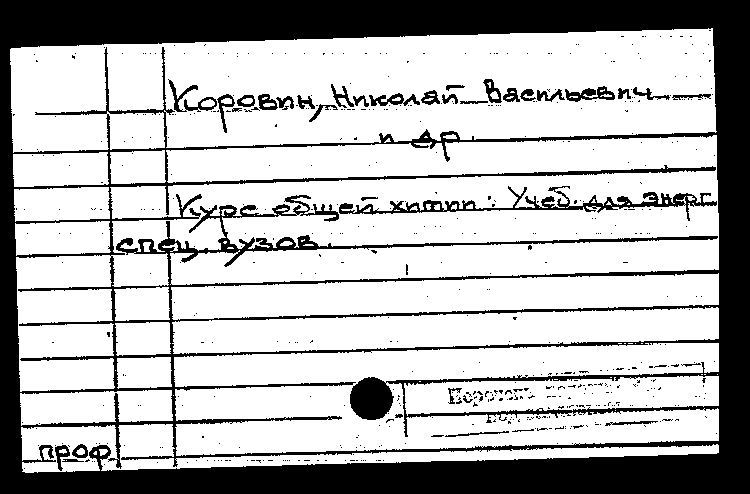 Коровин, Николай Васильевич
и др.
Курс общей химии: Учеб. для энерг.
спец. вузов.
проф